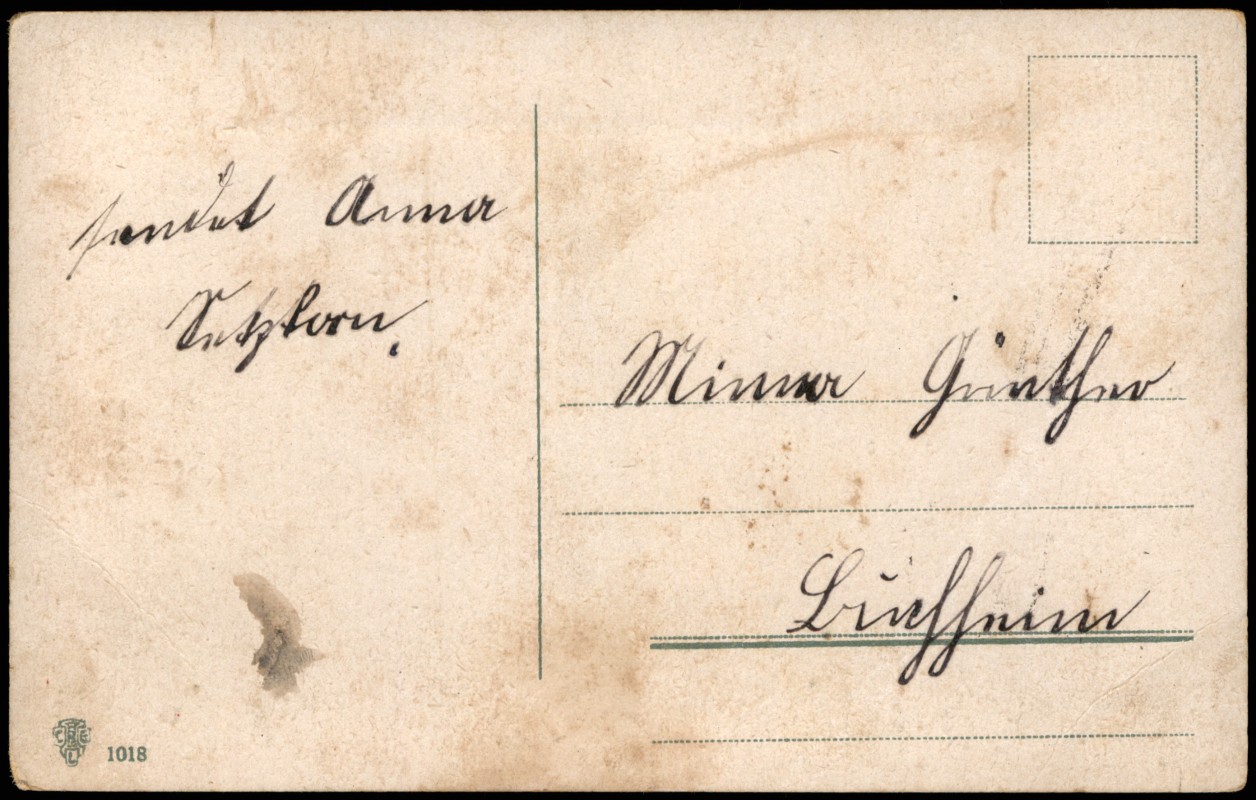 sendet Anna
Setzkorn.
Minna Günther
Buchheim
1018